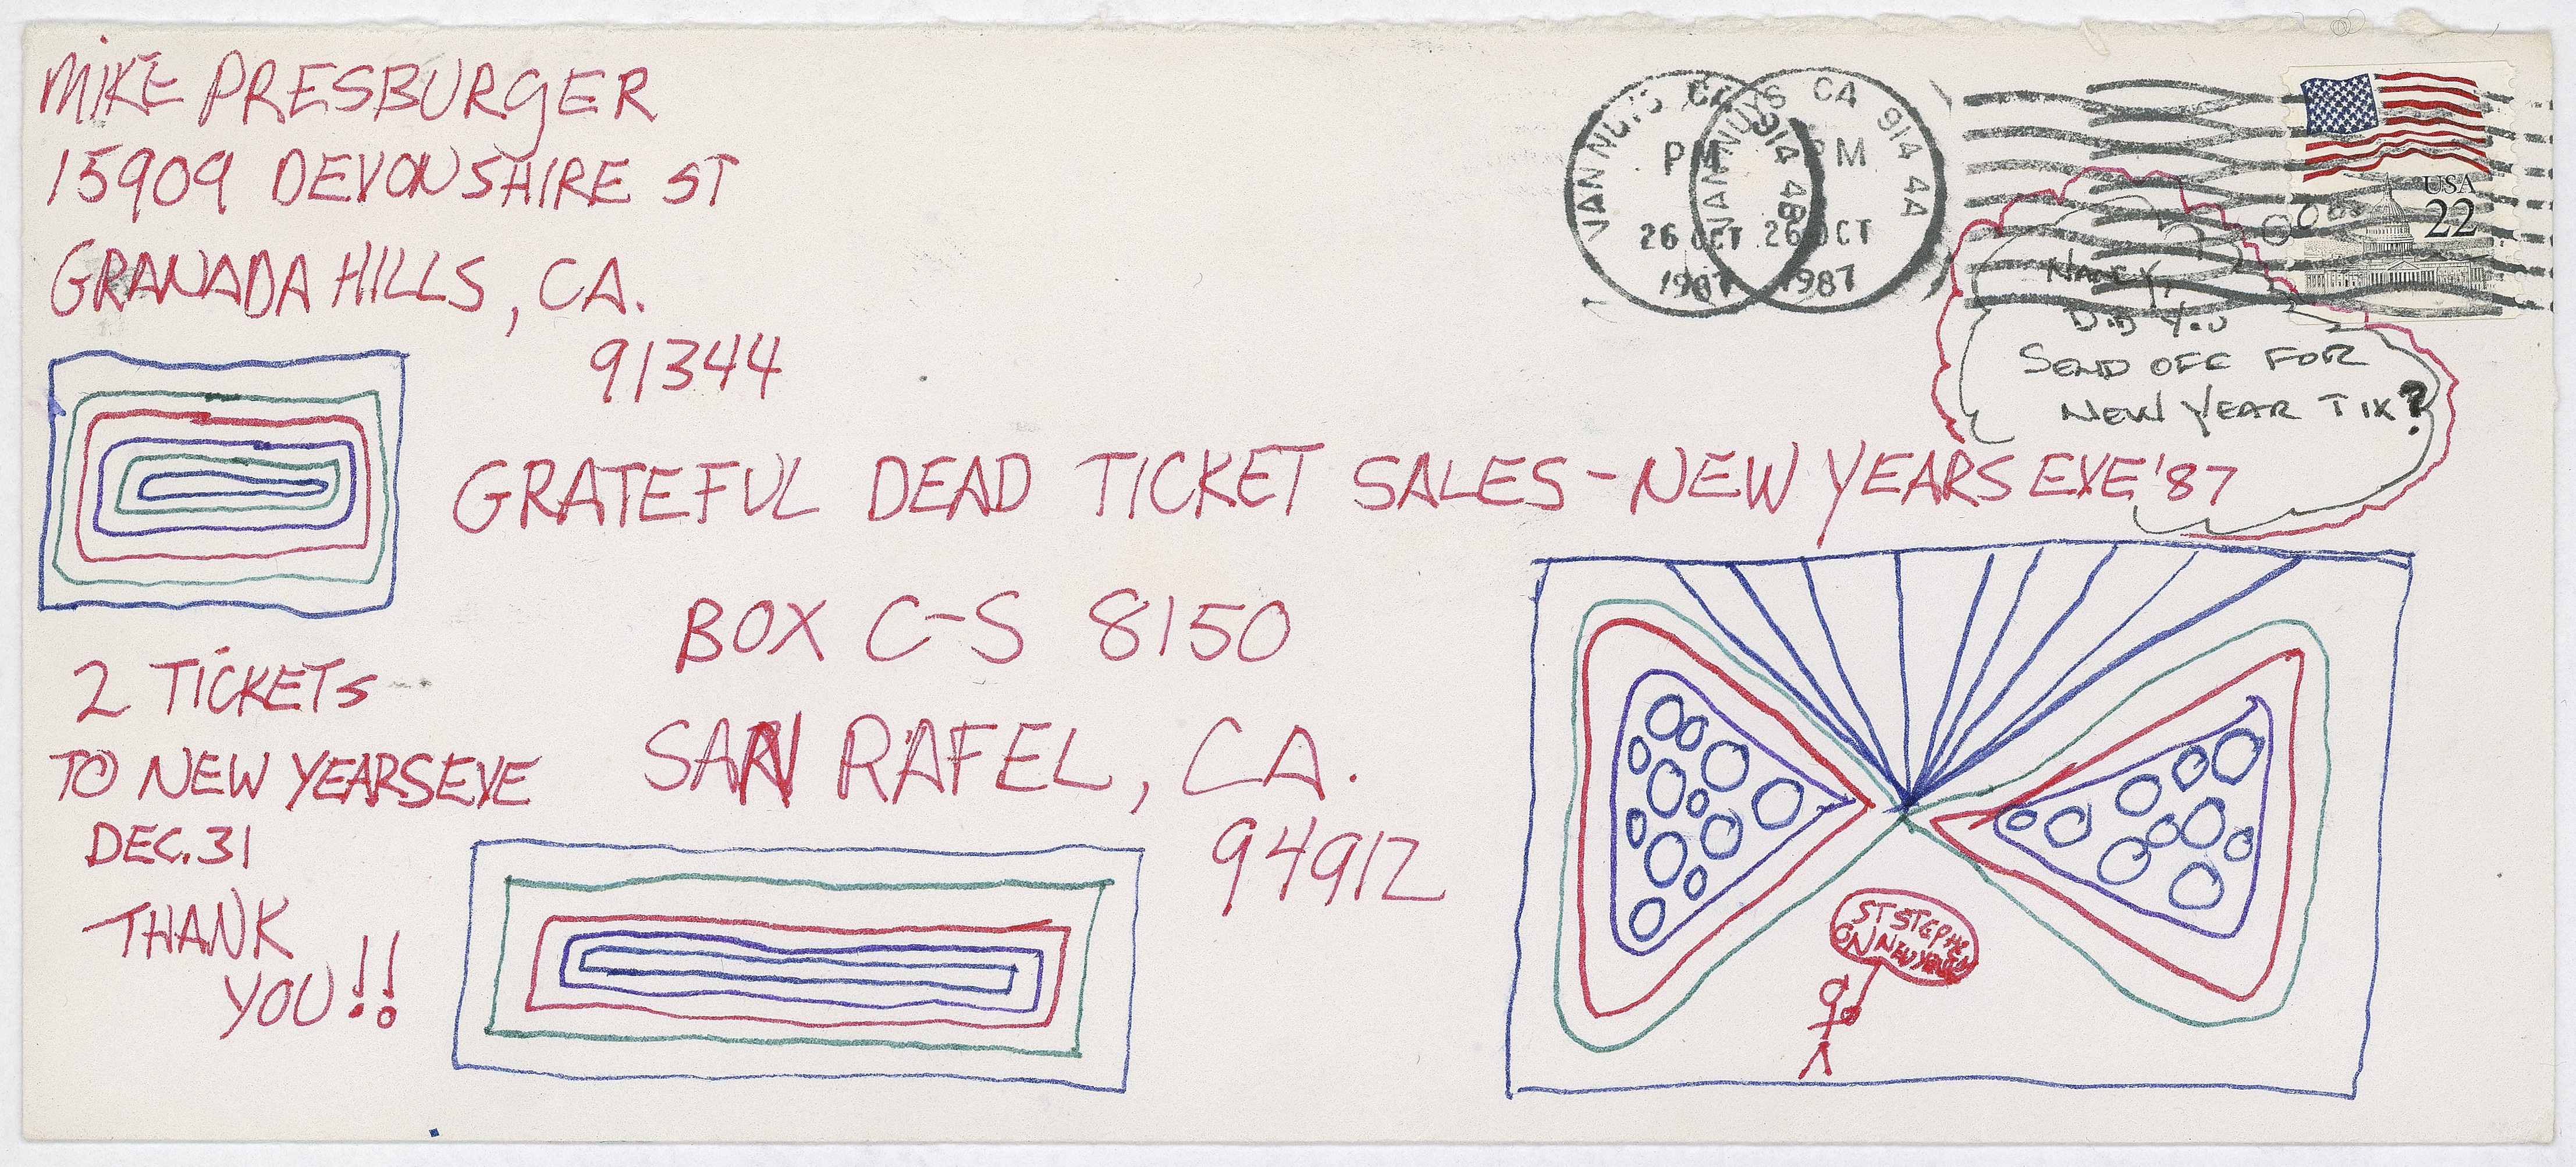 MIKE PRESBURGER
15909 DEVONSHIRE ST
GRANADA HILLS, CA.
91344
VAN NUYS CA 914 4B
PM
26 OCT
1987
VAN NUYS CA 914 4A
PM
26 OCT
1987
USA
22
NANCY,
DID YOU
SEND OFF FOR
NEW YEAR TIX?
GRATEFUL DEAD TICKET SALES-NEW YEARS EVE '87
BOX C-S 8150
SAN RAFEL, CA.
94912
2 TICKETS
TO NEW YEARS EVE
DEC. 31
THANK
YOU!!
ST STEPHEN
ON NEW YEARS